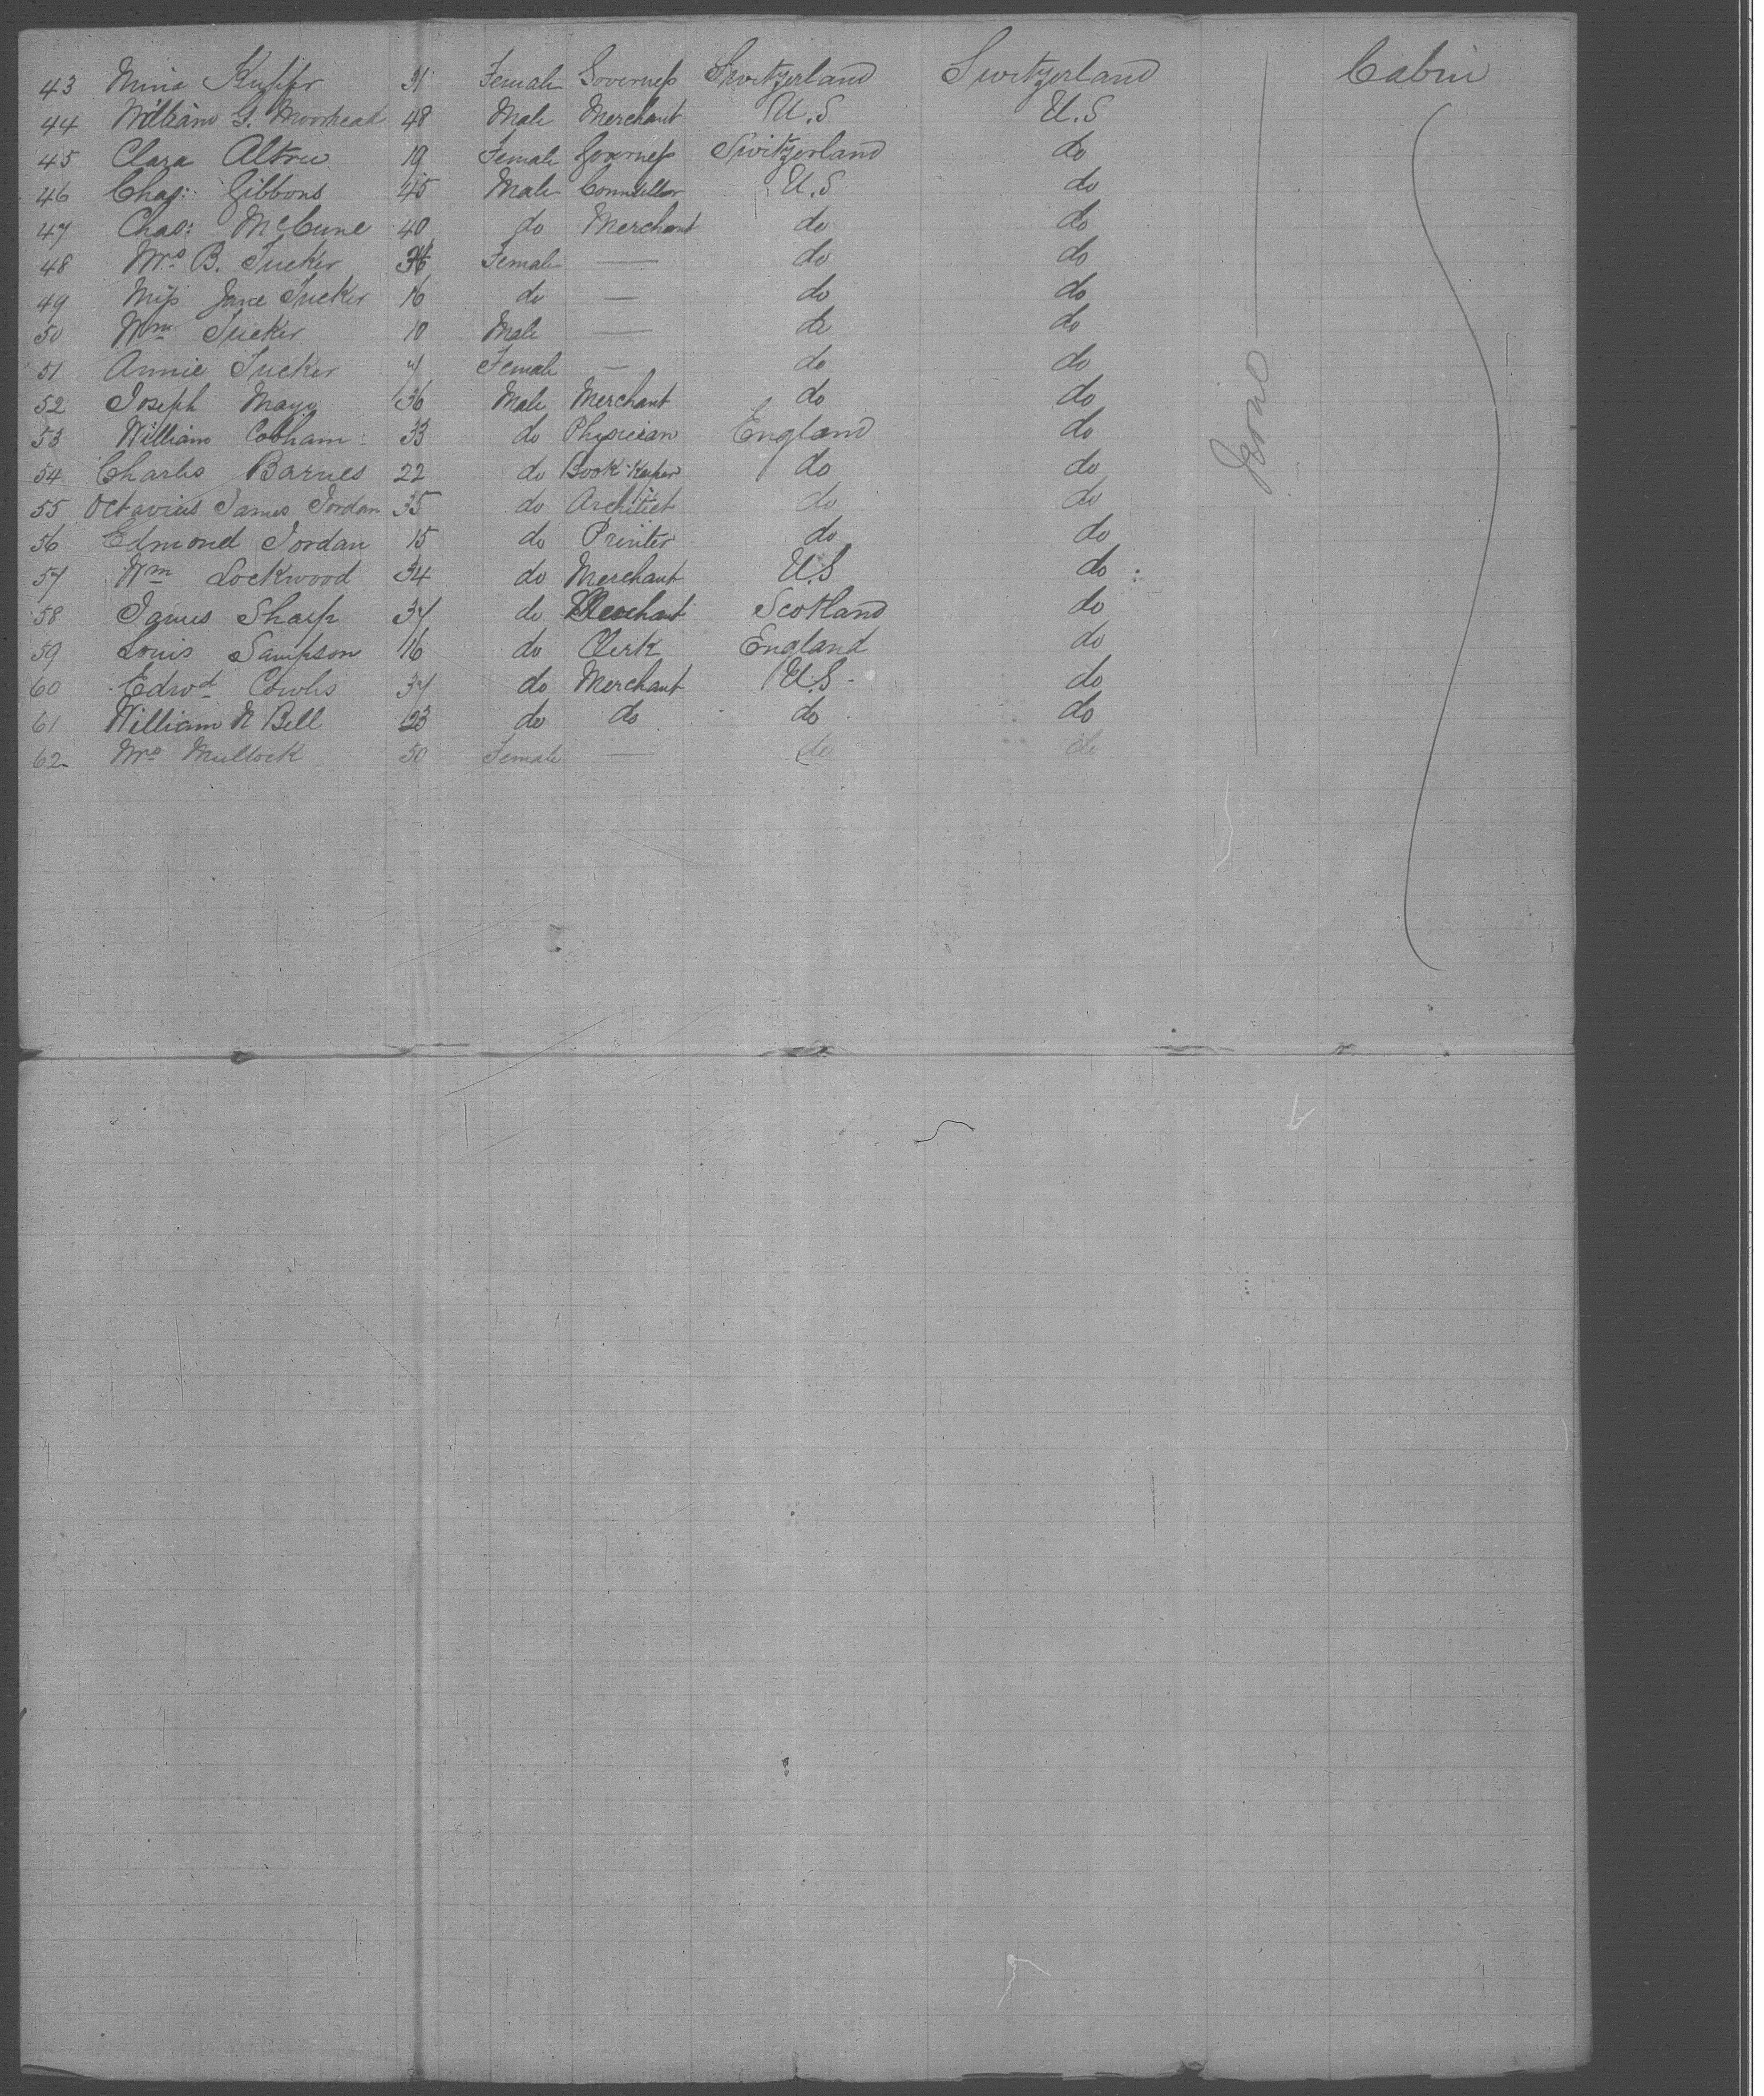 43 Mina Kupfr 31 Female Governess Switzerland Switzerland Cabin
44 William G. Moorhead 48 Male Merchant U.S U.S
45 Clara 19 Female Governess Switzerland do
46 Chas: Gibbons 45 Male Counsellor U.S do
47 Chas: McCune 40 do Merchant do do
48 Mrs B. Tucker 36 Female — do do
49 Miss Jane Tucker 16 do — do do
50 Wm Tucker 10 Male — do do
51 Annie Tucker 7 Female — do do
52 Joseph Mayo 36 Male Merchant do do
53 William Cobham 33 do Physician England do
54 Charles Barnes 22 do Book-Keeper do do
55 Octavius James Jordan 35 do Architect do do
56 Edmond Jordan 15 do Printer do do
57 Wm Lockwood 34 do Merchant U.S do
58 James Sharp 37 do Merchant Scotland do
59 Louis Sampson 16 do Clerk England do
60 Edwd Cowles 37 do Merchant U.S do
61 William N Bell 23 do do do do
62 Mrs Mullock 50 Female — do do
None